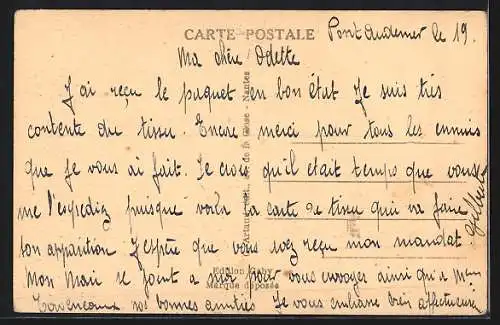 CARTE POSTALE
Pont Audemer le 19.
Ma chère Odette
J'ai reçu le paquet en bon état Je suis très
contente du tissu. Encore merci pour tous les ennuis
que je vous ai fait. Je crois qu'il était temps que vous
me l'expediez puisque voilà la carte de tissu qui va faire
son apparition J'espère que vous avez reçu mon mandat
Mon Mari se joint a moi pour vous envoyer ainsi qu'a
nos bonnes amitiés Je vous embrasse bien affectueusement
Edition
Marque déposée
Nantes